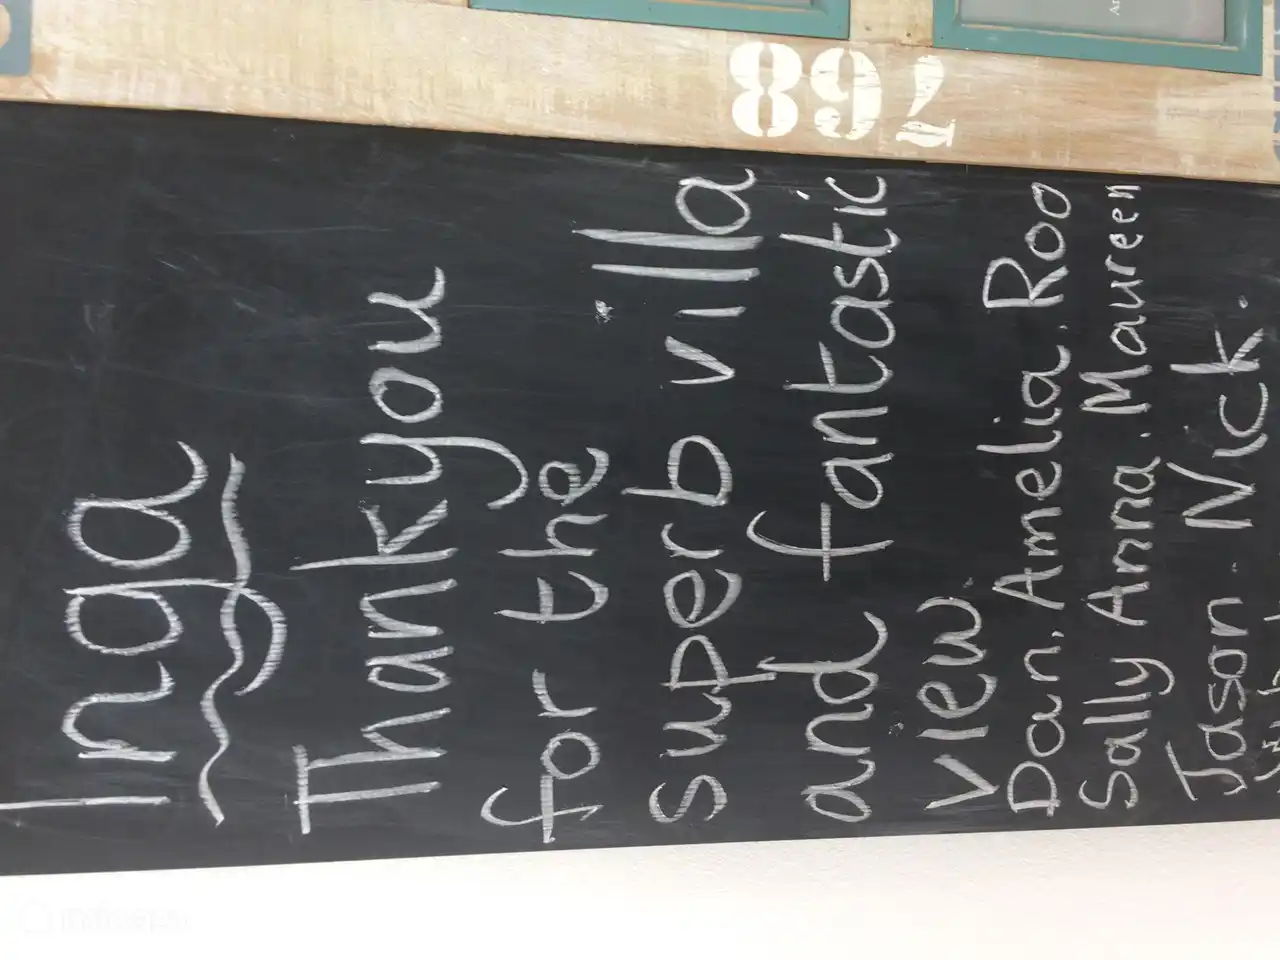 Inga
Thankyou
for the
superb villa
and fantastic
view.
Dan. Amelia. Roo
Sally Anna. Maureen
Jason. Nick.
897